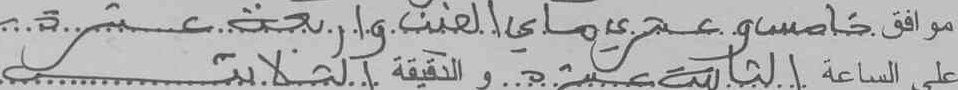 موافق خامس و عشري ماي الفين و اربعة عشرة
على الساعة الثالثة عشرة و الدقيقة الثلاثين